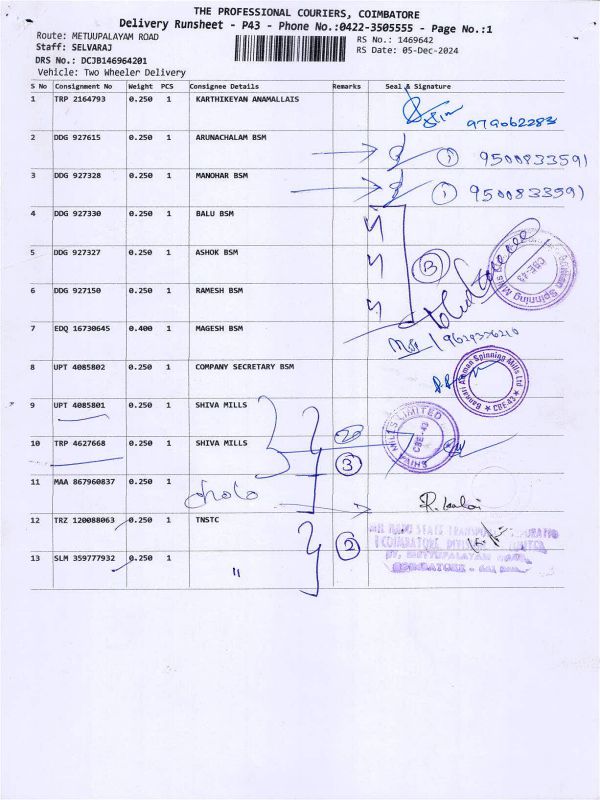 THE PROFESSIONAL COURIERS, COIMBATORE
Delivery Runsheet - P43 - Phone No.:0422-3505555 - Page No.:1
Route: METUUPALAYAM ROAD
RS No.: 1469642
Staff: SELVARAJ
RS Date: 05-Dec-2024
DRS No.: DCJB146964201
Vehicle: Two Wheeler Delivery
S No Consignment No Weight PCS Consignee Details Remarks Seal & Signature
1 TRP 2164793 0.250 1 KARTHIKEYAN ANAMALLAIS
979062283
2 DDG 927615 0.250 1 ARUNACHALAM BSM
1 9500833591
3 DDG 927328 0.250 1 MANOHAR BSM
1 9500833591
4 DDG 927330 0.250 1 BALU BSM
5 DDG 927327 0.250 1 ASHOK BSM
6 DDG 927150 0.250 1 RAMESH BSM
7 EDQ 16730645 0.400 1 MAGESH BSM
8 UPT 4085802 0.250 1 COMPANY SECRETARY BSM
Bannari Amman Spinning Mills Ltd
CBE-43
9 UPT 4085801 0.250 1 SHIVA MILLS
SHIVA MILLS LIMITED
CBE-43
10 TRP 4627668 0.250 1 SHIVA MILLS
3
11 MAA 867960837 0.250 1
12 TRZ 120088063 0.250 1 TNSTC
2
13 SLM 359777932 0.250 1 "